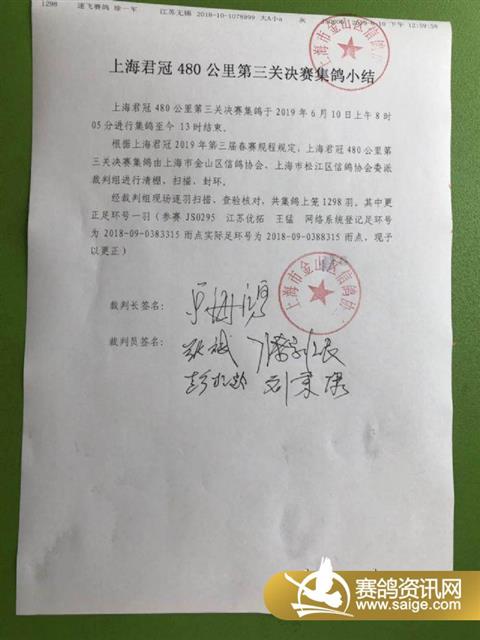 1298 速飞赛鸽 徐一军 江苏无锡 2018-10-1078899 大A小a 灰 2019-6-10 下午 12:59:59
上海君冠 480 公里第三关决赛集鸽小结
上海君冠 480 公里第三关决赛集鸽于 2019 年 6 月 10 日上午 8 时
05 分进行集鸽至今 13 时结束。
根据上海君冠 2019 年第三届春赛规程规定,上海君冠 480 公里第
三关决赛集鸽由上海市金山区信鸽协会、上海市松江区信鸽协会委派
裁判组进行清棚、扫描、封环。
经裁判组现场逐羽扫描、查验核对,共集鸽上笼 1298 羽。其中更
正足环号一羽(参赛 JS0295 江苏优拓 王猛 网络系统登记足环号
为 2018-09-0383315 雨点实际足环号为 2018-09-0388315 雨点,现予
以更正)
上海市金山区信鸽协会
裁判长签名:
裁判员签名:
张斌
刘荣
赛鸽资讯网
www.saige.com